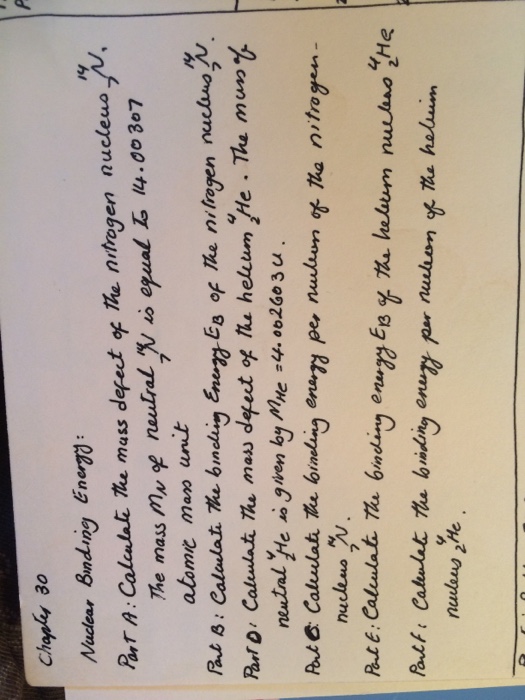 Chapter 30
Nuclear Binding Energy:
Part A: Calculate the mass defect of the nitrogen nucleus ¹⁴₇N.
The mass MN of neutral ¹⁴₇N is equal to 14.00307
atomic mass unit
Part B: Calculate the binding Energy EB of the nitrogen nucleus ¹⁴₇N.
Part D: Calculate the mass defect of the helium ⁴₂He. The mass of
neutral ⁴₂He is given by MHe = 4.002603u.
Part C: Calculate the binding energy per nucleon of the nitrogen-
nucleus ¹⁴₇N.
Part E: Calculate the binding energy EB of the helium nucleus ⁴₂He
Part F: Calculate the binding energy per nucleon of the helium
nucleus ⁴₂He.